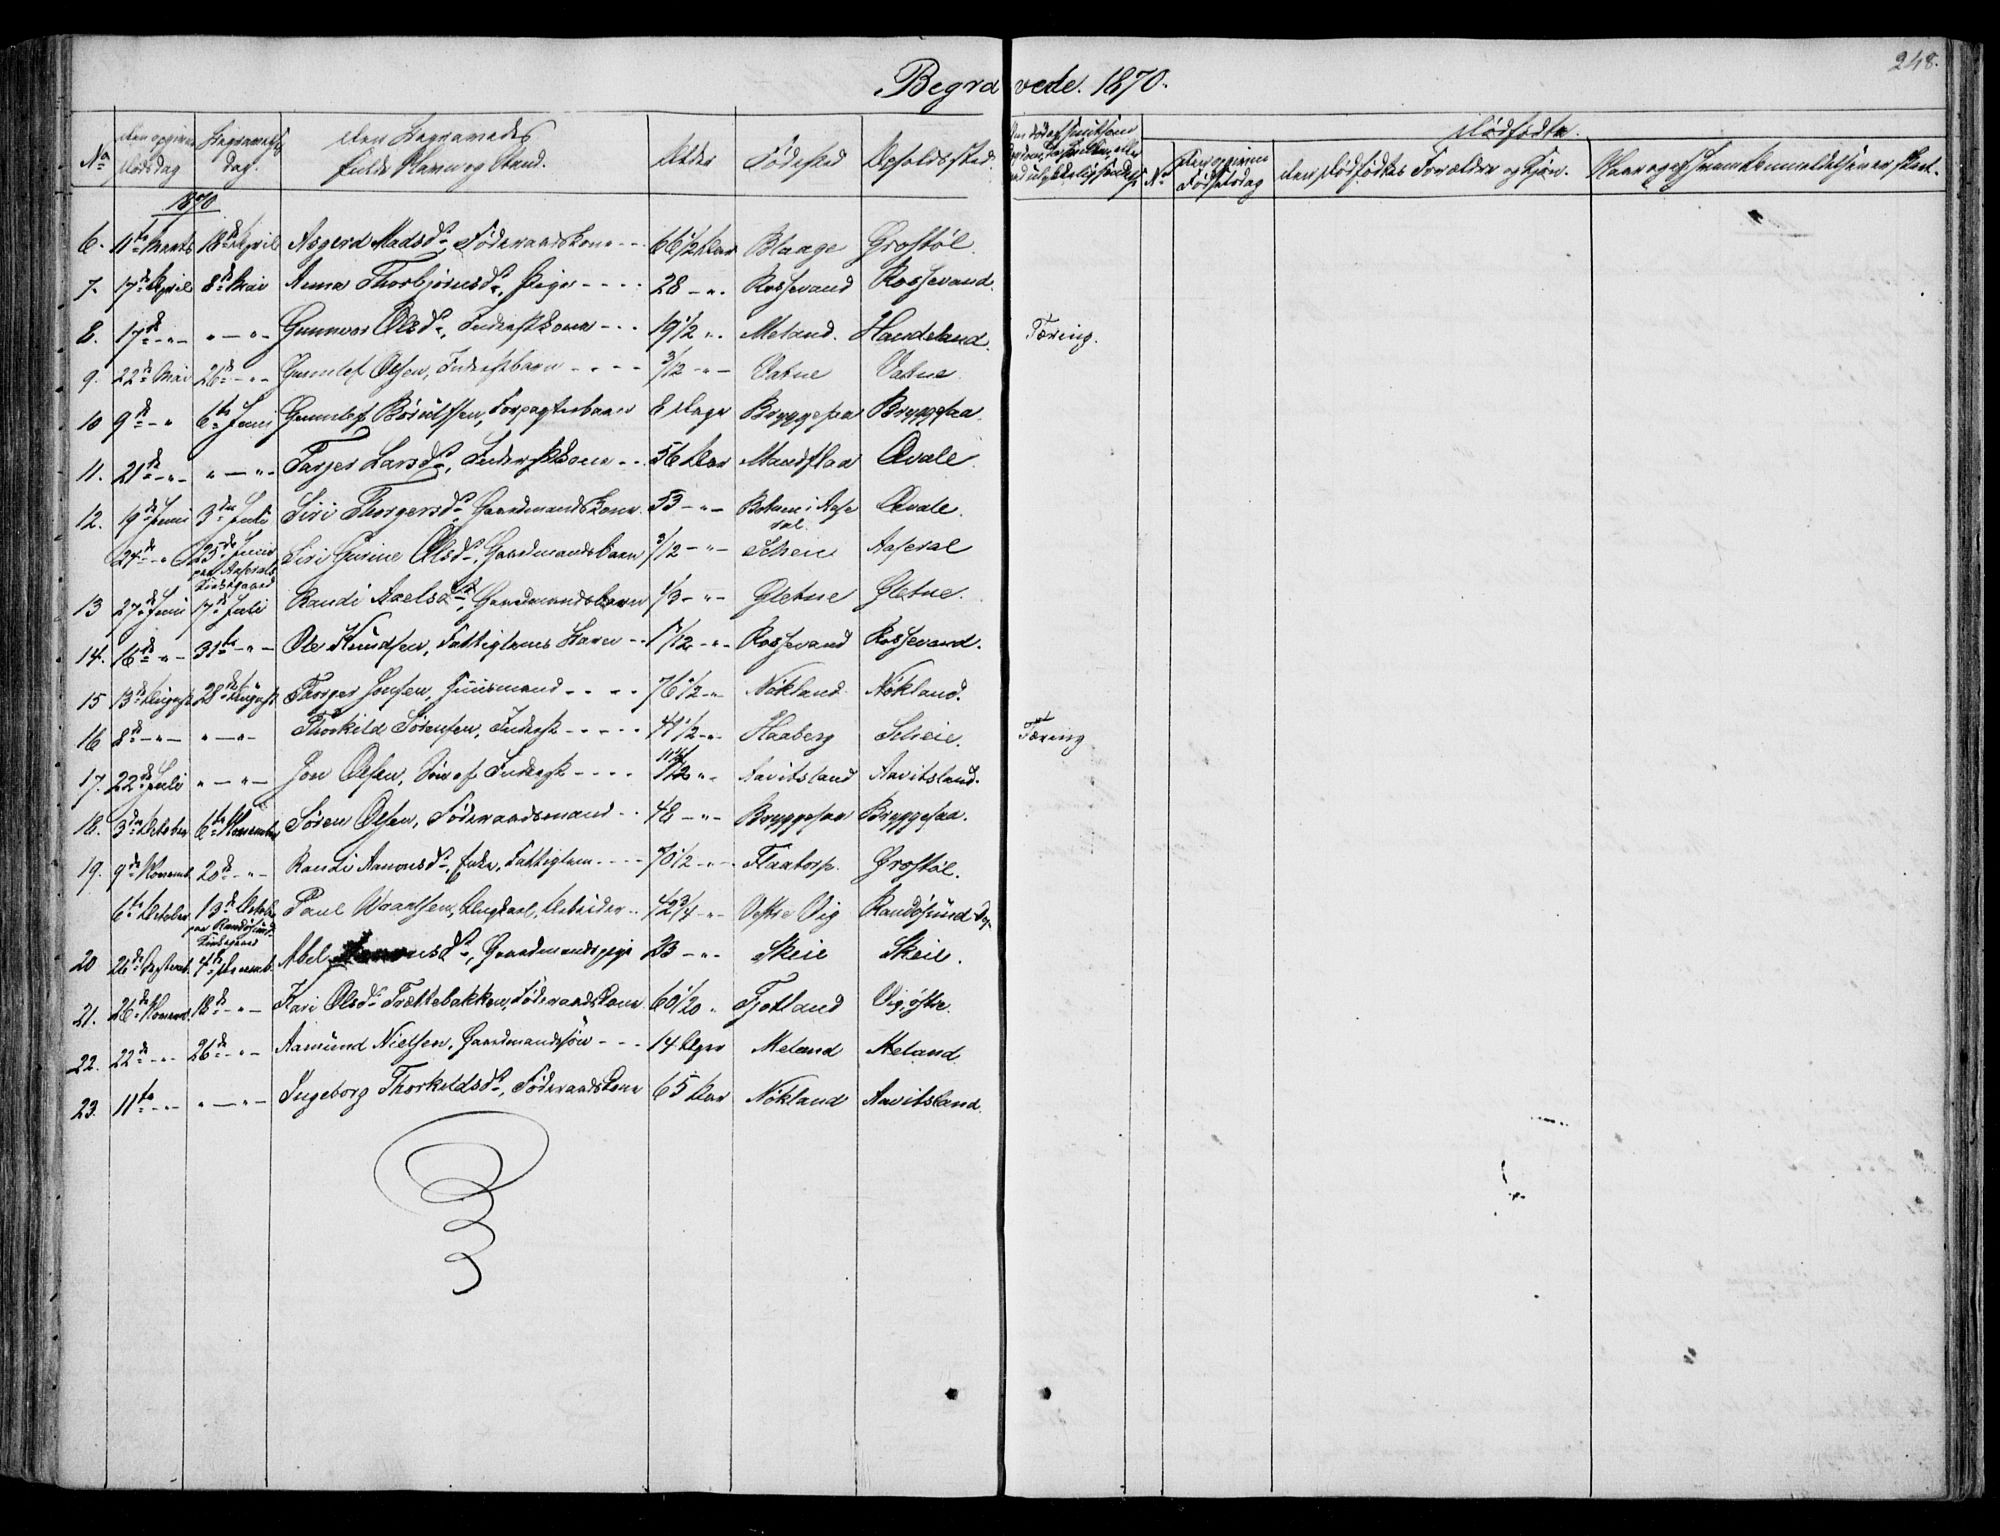 248.
Begravede. 1870.
No Den opgivne Dødsdag Begravelsesdag. Den Begravedes fulde Navn og Stand. Alder Fødested Opholdssted. Dødfødte.
No Den opgivne Fødselsdag Den Dødfødtes Forældre og Kjøn.
1870
6. 11te Marts 18de April Asgerd Madsdr, Føderaadskone - - 66 1/2 Aar Blaage Grostøl.
7. 17de April 8de Mai Anna Thorbjørnsdr, Pige - - - - 28 - " - Rossevand Rossevand.
8. 17de - " - " - " - Gunnvor Olsdr, Inderstkone - - - 19 1/2 " - Meland. Haudeland. Tæring.
9. 22de Mai 26de - " - Gunnlef Olsen, Inderstbarn - - - - 3/12 - " - Vatne Vatne.
10 9de - " 6te Juni Gunnlef Børulfsen, Forpagterbarn 8 Dage Bryggesaa Bryggesaa.
11. 21de - " - " - " - Tarjer Larsdr, Inderstkone - - 56 Aar Mandflaa Øvale.
12. 19de Juni 3die Juli Siri Thorgersdr, Gaardmandskone. 53 - " - Botnen i Aaseral. Øvale.
24de - " 25de Juni paa Aaserals Kirkegaard Siri Gurine Olsdr, Gaardmandsbarn 3/12 - " - Scheie Aaseral
13 27de Juni 17de Juli Randi Aaelsdr, Gaardmandsbarn 1/3 - " - Gletne Gletne.
14. 16de " - 31te - " - Ole Knudsen, Fattiglems Barn - - Rossevand Rossevand.
15 13de August 28de August Thorger Jonsen, Huusmand - - - - 76 1/2 - " Nökland. Nökland.
16 8de - " - " - " - Thorkild Sørensen, Inderst - - - - - 41 1/2 - " - Haaberg Scheie. Tæring
17. 22de Juli " - " - Jon Olsen, Søn af Inderst - - - - Aavitsland Aavitsland.
18. 3die October 6te November Søren Olsen, Føderaadsmand - - 48 - " - Bryggesaa Bryggesaa.
19. 9de Novemb. 20de - " - Randi Aanonsdr, Enke, Fattiglem - - - - 70 1/2 - " - Flaatorp. Grostøl.
6te October 13de October paa Randøsunds Kirkegaard Paul Arbeider - - 42 3/4 - " Vestre Vig Randøsund
20 26de 4de Abel Gaardmandspige 23 - " - Skeie Skeie.
21. 26de Novemb. 18de - " - Kari Olsdr Trættebakken, Føderaadskone 60 1/20 " Fjotland Vig, østre.
22. 22de - " - 26de - " - Aamund Nielsen, Gaardmandssøn - - - 14 Uger Meland Meland.
23. 11te - " - " - " - Ingeborg Thorkildsdr, Føderaadskone 65 Aar Nökland Aavitsland.